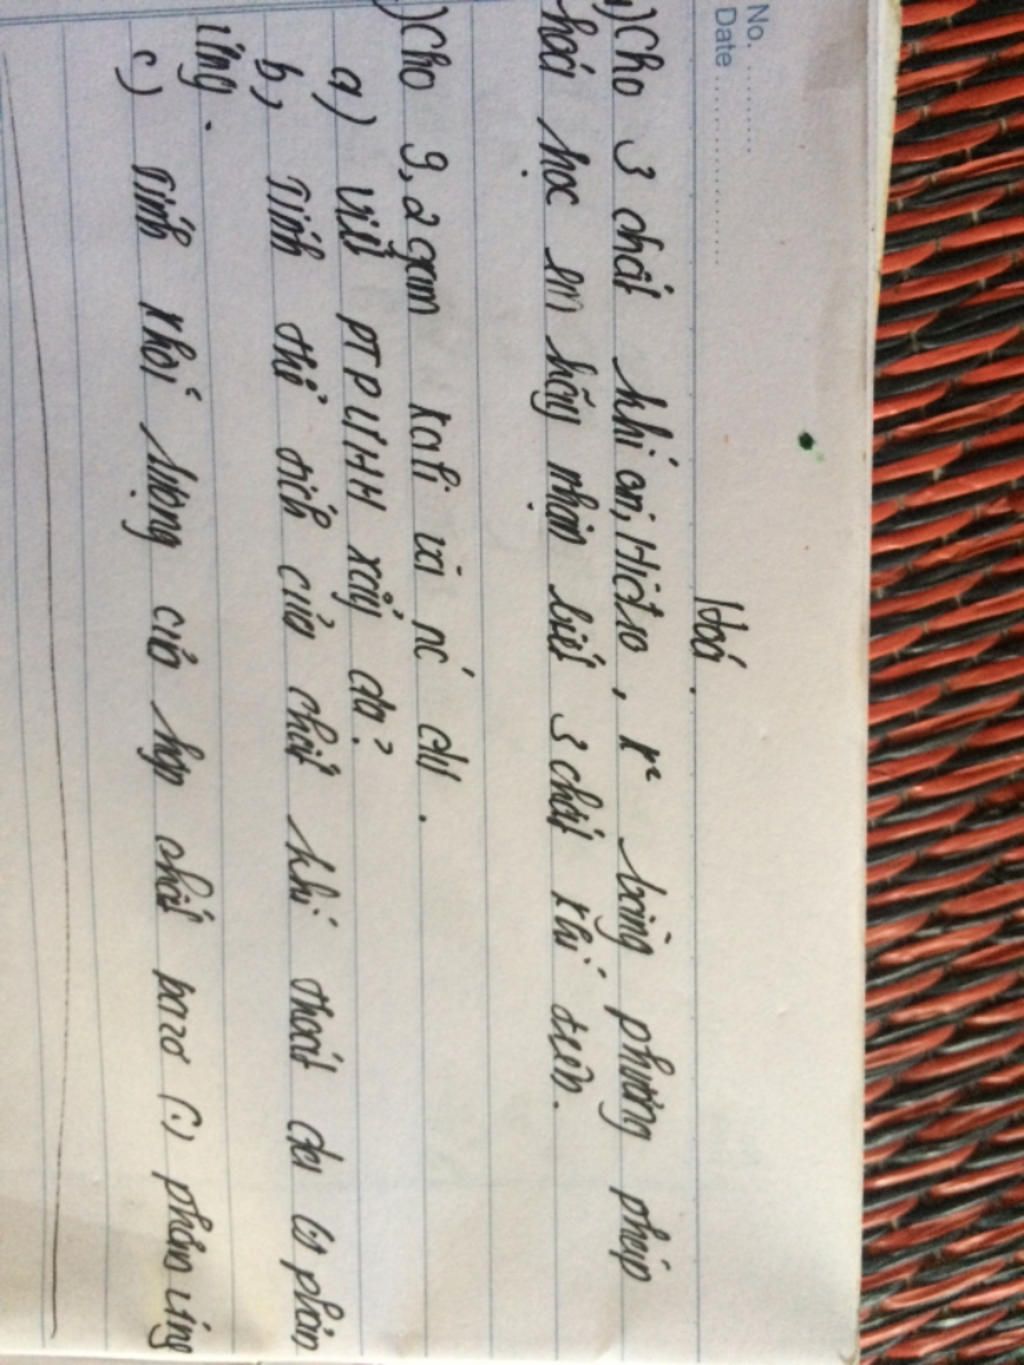 No. ..........
Date .....................
Hoá.
1) Cho 3 chất khí oxi, Hiđro, k² bằng phương pháp
hoá học em hãy nhận biết 3 chất khí trên.
) Cho 9,2 gam Kali và nc dư.
a) Viết PTPƯHH xảy ra?
b, Tính thể tích của chất khí thoát ra (.) phản
ứng.
c) Tính khối lượng của hợp chất bazơ (.) phản ứng